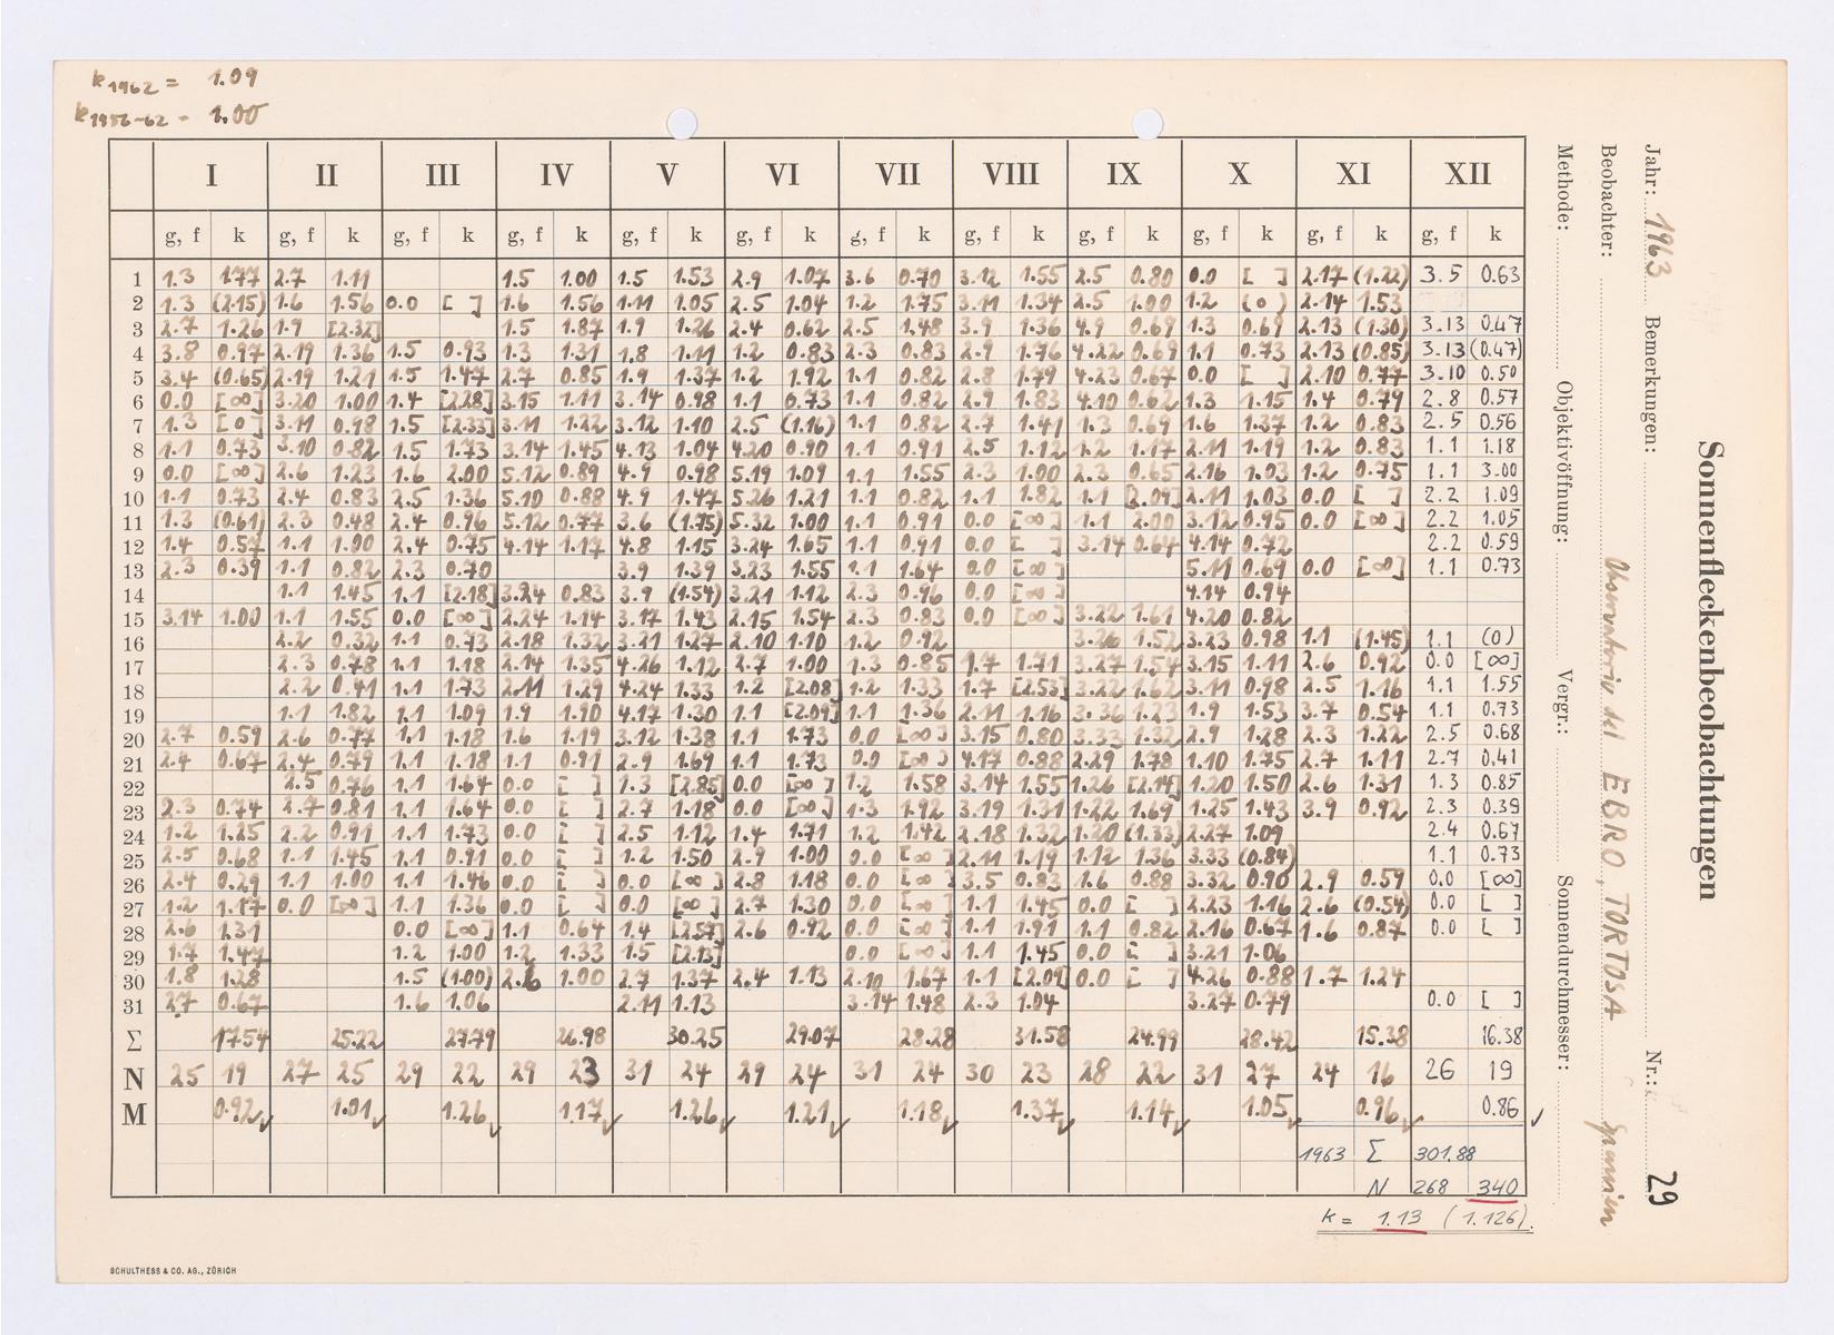 k1962 = 1.09
k1956-62 = 1.00
I II III IV V VI VII VIII IX X XI XII
g, f k g, f k g, f k g, f k g, f k g, f k g, f k g, f k g, f k g, f k g, f k g, f k
1 1.3 1.77 2.7 1.11 1.5 1.00 1.5 1.53 2.9 1.07 3.6 0.70 3.12 1.55 2.5 0.80 0.0 [ ] 2.17 (1.22) 3.5 0.63
2 1.3 (2.15) 1.6 1.56 0.0 [ ] 1.6 1.56 1.11 1.05 2.5 1.04 1.2 1.75 3.11 1.34 2.5 1.00 1.2 (0) 2.14 1.53
3 2.7 1.26 1.9 [2.32] 1.5 1.87 1.9 1.26 2.4 0.62 2.5 1.48 3.9 1.36 4.9 0.69 1.3 0.69 2.13 (1.30) 3.13 0.47
4 3.8 0.97 2.19 1.36 1.5 0.93 1.3 1.31 1.8 1.11 1.2 0.83 2.3 0.83 2.9 1.76 4.22 0.69 1.1 0.73 2.13 (0.85) 3.13 (0.47)
5 3.4 (0.65) 2.19 1.21 1.5 1.47 2.7 0.85 1.9 1.37 1.2 1.92 1.1 0.82 2.8 1.79 4.23 0.67 0.0 [ ] 2.10 0.77 3.10 0.50
6 0.0 [∞] 3.20 1.00 1.4 [2.28] 3.15 1.11 3.14 0.98 1.1 0.73 1.1 0.82 2.9 1.83 4.10 0.62 1.3 1.15 1.4 0.79 2.8 0.57
7 1.3 [0] 3.11 0.98 1.5 [2.33] 3.11 1.22 3.12 1.10 2.5 (1.16) 1.1 0.82 2.7 1.41 1.3 0.69 1.6 1.37 1.2 0.83 2.5 0.56
8 1.1 0.73 3.10 0.82 1.5 1.73 3.14 1.45 4.13 1.04 4.20 0.90 1.1 0.91 2.5 1.12 1.2 1.17 2.11 1.19 1.2 0.83 1.1 1.18
9 0.0 [∞] 2.6 1.23 1.6 2.00 5.12 0.89 4.9 0.98 5.19 1.09 1.1 1.55 2.3 1.00 2.3 0.65 2.16 1.03 1.2 0.75 1.1 3.00
10 1.1 0.73 2.4 0.83 2.5 1.36 5.10 0.88 4.9 1.47 5.26 1.21 1.1 0.82 1.1 1.82 1.1 [2.09] 2.11 1.03 0.0 [ ] 2.2 1.09
11 1.3 (0.61) 2.3 0.48 2.4 0.96 5.12 0.77 3.6 (1.75) 5.32 1.00 1.1 0.91 0.0 [∞] 1.1 2.00 3.12 0.95 0.0 [∞] 2.2 1.05
12 1.4 0.57 1.1 1.00 2.4 0.75 4.14 1.17 4.8 1.15 3.24 1.65 1.1 0.91 0.0 [ ] 3.14 0.64 4.14 0.72 2.2 0.59
13 2.3 0.39 1.1 0.82 2.3 0.70 3.9 1.39 3.23 1.55 1.1 1.64 0.0 [∞] 5.11 0.69 0.0 [∞] 1.1 0.73
14 1.1 1.45 1.1 [2.18] 3.24 0.83 3.9 (1.54) 3.21 1.12 2.3 0.96 0.0 [∞] 4.14 0.94
15 3.14 1.00 1.1 1.55 0.0 [∞] 2.24 1.14 3.17 1.43 2.15 1.54 2.3 0.83 0.0 [∞] 3.22 1.61 4.20 0.82
16 2.2 0.32 1.1 0.73 2.18 1.32 3.21 1.27 2.10 1.10 1.2 0.92 3.26 1.52 3.23 0.98 1.1 (1.45) 1.1 (0)
17 2.3 0.78 1.1 1.18 2.14 1.35 4.26 1.12 2.7 1.00 1.3 0.85 1.7 1.71 3.27 1.54 3.15 1.11 2.6 0.92 0.0 [∞]
18 2.2 0.41 1.1 1.73 2.11 1.29 4.24 1.33 1.2 [2.08] 1.2 1.33 1.7 [2.53] 3.22 1.62 3.11 0.98 2.5 1.16 1.1 1.55
19 1.1 1.82 1.1 1.09 1.9 1.90 4.17 1.30 1.1 [2.09] 1.1 1.36 2.11 1.16 3.36 1.23 1.9 1.53 3.7 0.54 1.1 0.73
20 2.7 0.59 2.6 0.77 1.1 1.18 1.6 1.19 3.12 1.38 1.1 1.73 0.0 [∞] 3.15 0.80 3.33 1.32 2.9 1.28 2.3 1.22 2.5 0.68
21 2.4 0.67 2.4 0.79 1.1 1.18 1.1 0.91 2.9 1.69 1.1 1.73 0.0 [∞] 4.17 0.88 2.29 1.78 1.10 1.75 2.7 1.11 2.7 0.41
22 2.5 0.76 1.1 1.64 0.0 [ ] 1.3 [2.85] 0.0 [∞] 1.2 1.58 3.14 1.55 1.26 [2.14] 1.20 1.50 2.6 1.31 1.3 0.85
23 2.3 0.74 2.7 0.81 1.1 1.64 0.0 [ ] 2.7 1.18 0.0 [∞] 1.3 1.92 3.19 1.31 1.22 1.69 1.25 1.43 3.9 0.92 2.3 0.39
24 1.2 1.25 2.2 0.91 1.1 1.73 0.0 [ ] 2.5 1.12 1.4 1.71 1.2 1.42 2.18 1.32 1.20 (1.33) 2.27 1.09 2.4 0.67
25 2.5 0.68 1.1 1.45 1.1 0.91 0.0 [ ] 1.2 1.50 2.9 1.00 0.0 [∞] 2.11 1.19 1.12 1.36 3.33 (0.84) 1.1 0.73
26 2.4 0.29 1.1 1.00 1.1 1.46 0.0 [ ] 0.0 [∞] 2.8 1.18 0.0 [∞] 3.5 0.83 1.6 0.88 3.32 0.90 2.9 0.59 0.0 [∞]
27 1.2 1.17 0.0 [∞] 1.1 1.36 0.0 [ ] 0.0 [∞] 2.7 1.30 0.0 [∞] 1.1 1.45 0.0 [ ] 2.23 1.16 2.6 (0.54) 0.0 [ ]
28 2.6 1.31 0.0 [∞] 1.1 0.64 1.4 [2.57] 2.6 0.92 0.0 [∞] 1.1 1.91 1.1 0.82 2.16 0.67 1.6 0.87 0.0 [ ]
29 1.7 1.47 1.2 1.00 1.2 1.33 1.5 [2.13] 0.0 [∞] 1.1 1.45 0.0 [ ] 3.21 1.06
30 1.8 1.28 1.5 (1.00) 2.6 1.00 2.7 1.37 2.4 1.13 2.10 1.67 1.1 [2.09] 0.0 [ ] 4.26 0.88 1.7 1.24
31 2.7 0.67 1.6 1.06 2.11 1.13 3.14 1.48 2.3 1.04 3.27 0.79 0.0 [ ]
Σ 17.54 25.22 27.79 26.98 30.25 29.07 28.28 31.58 24.99 28.42 15.38 16.38
N 25 19 27 25 29 22 29 23 31 24 29 24 31 24 30 23 28 22 31 27 24 16 26 19
M 0.92✓ 1.01✓ 1.26✓ 1.17✓ 1.26✓ 1.21✓ 1.18✓ 1.37✓ 1.14✓ 1.05✓ 0.96✓ 0.86 ✓
1963 Σ 301.88
N 268 340
k = 1.13 (1.126).
SCHULTHESS & CO. AG., ZÜRICH
Sonnenfleckenbeobachtungen
Jahr: 1963 Bemerkungen: Nr.: 29
Beobachter: Observatorio del EBRO, TORTOSA Spanien
Methode: Objektivöffnung: Vergr.: Sonnendurchmesser: